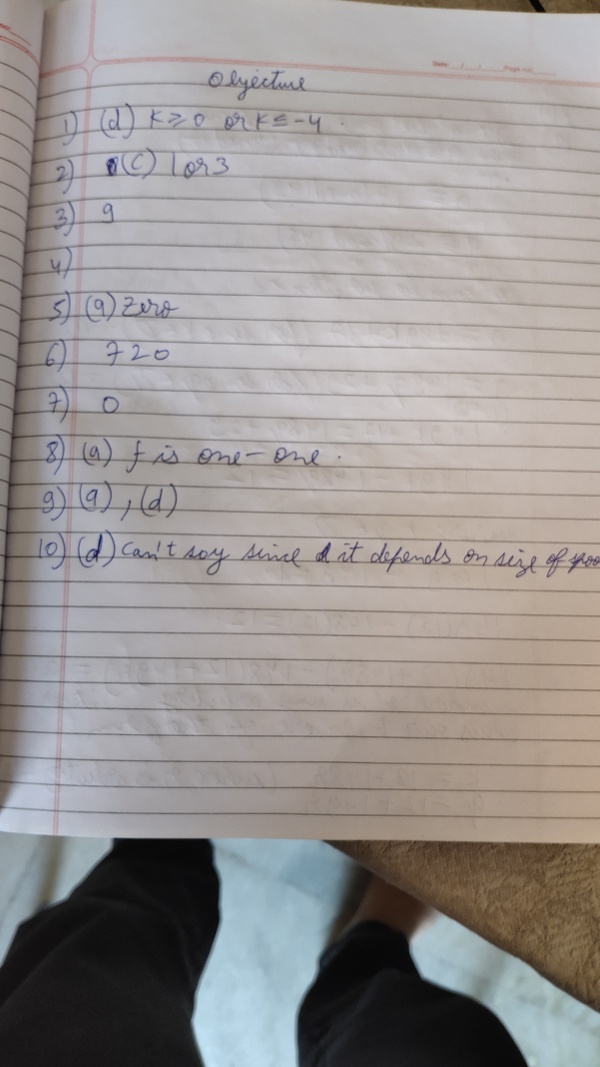 Objective
1) (d) K ≥ 0 or K ≤ -4 .
2) (C) 1 or 3
3) 9
4)
5) (a) Zero
6) 720
7) 0
8) (a) f is one-one .
9) (a), (d)
10) (d) Can't say since it depends on size of